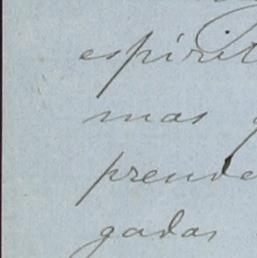 espirit
mas
prende
gadas